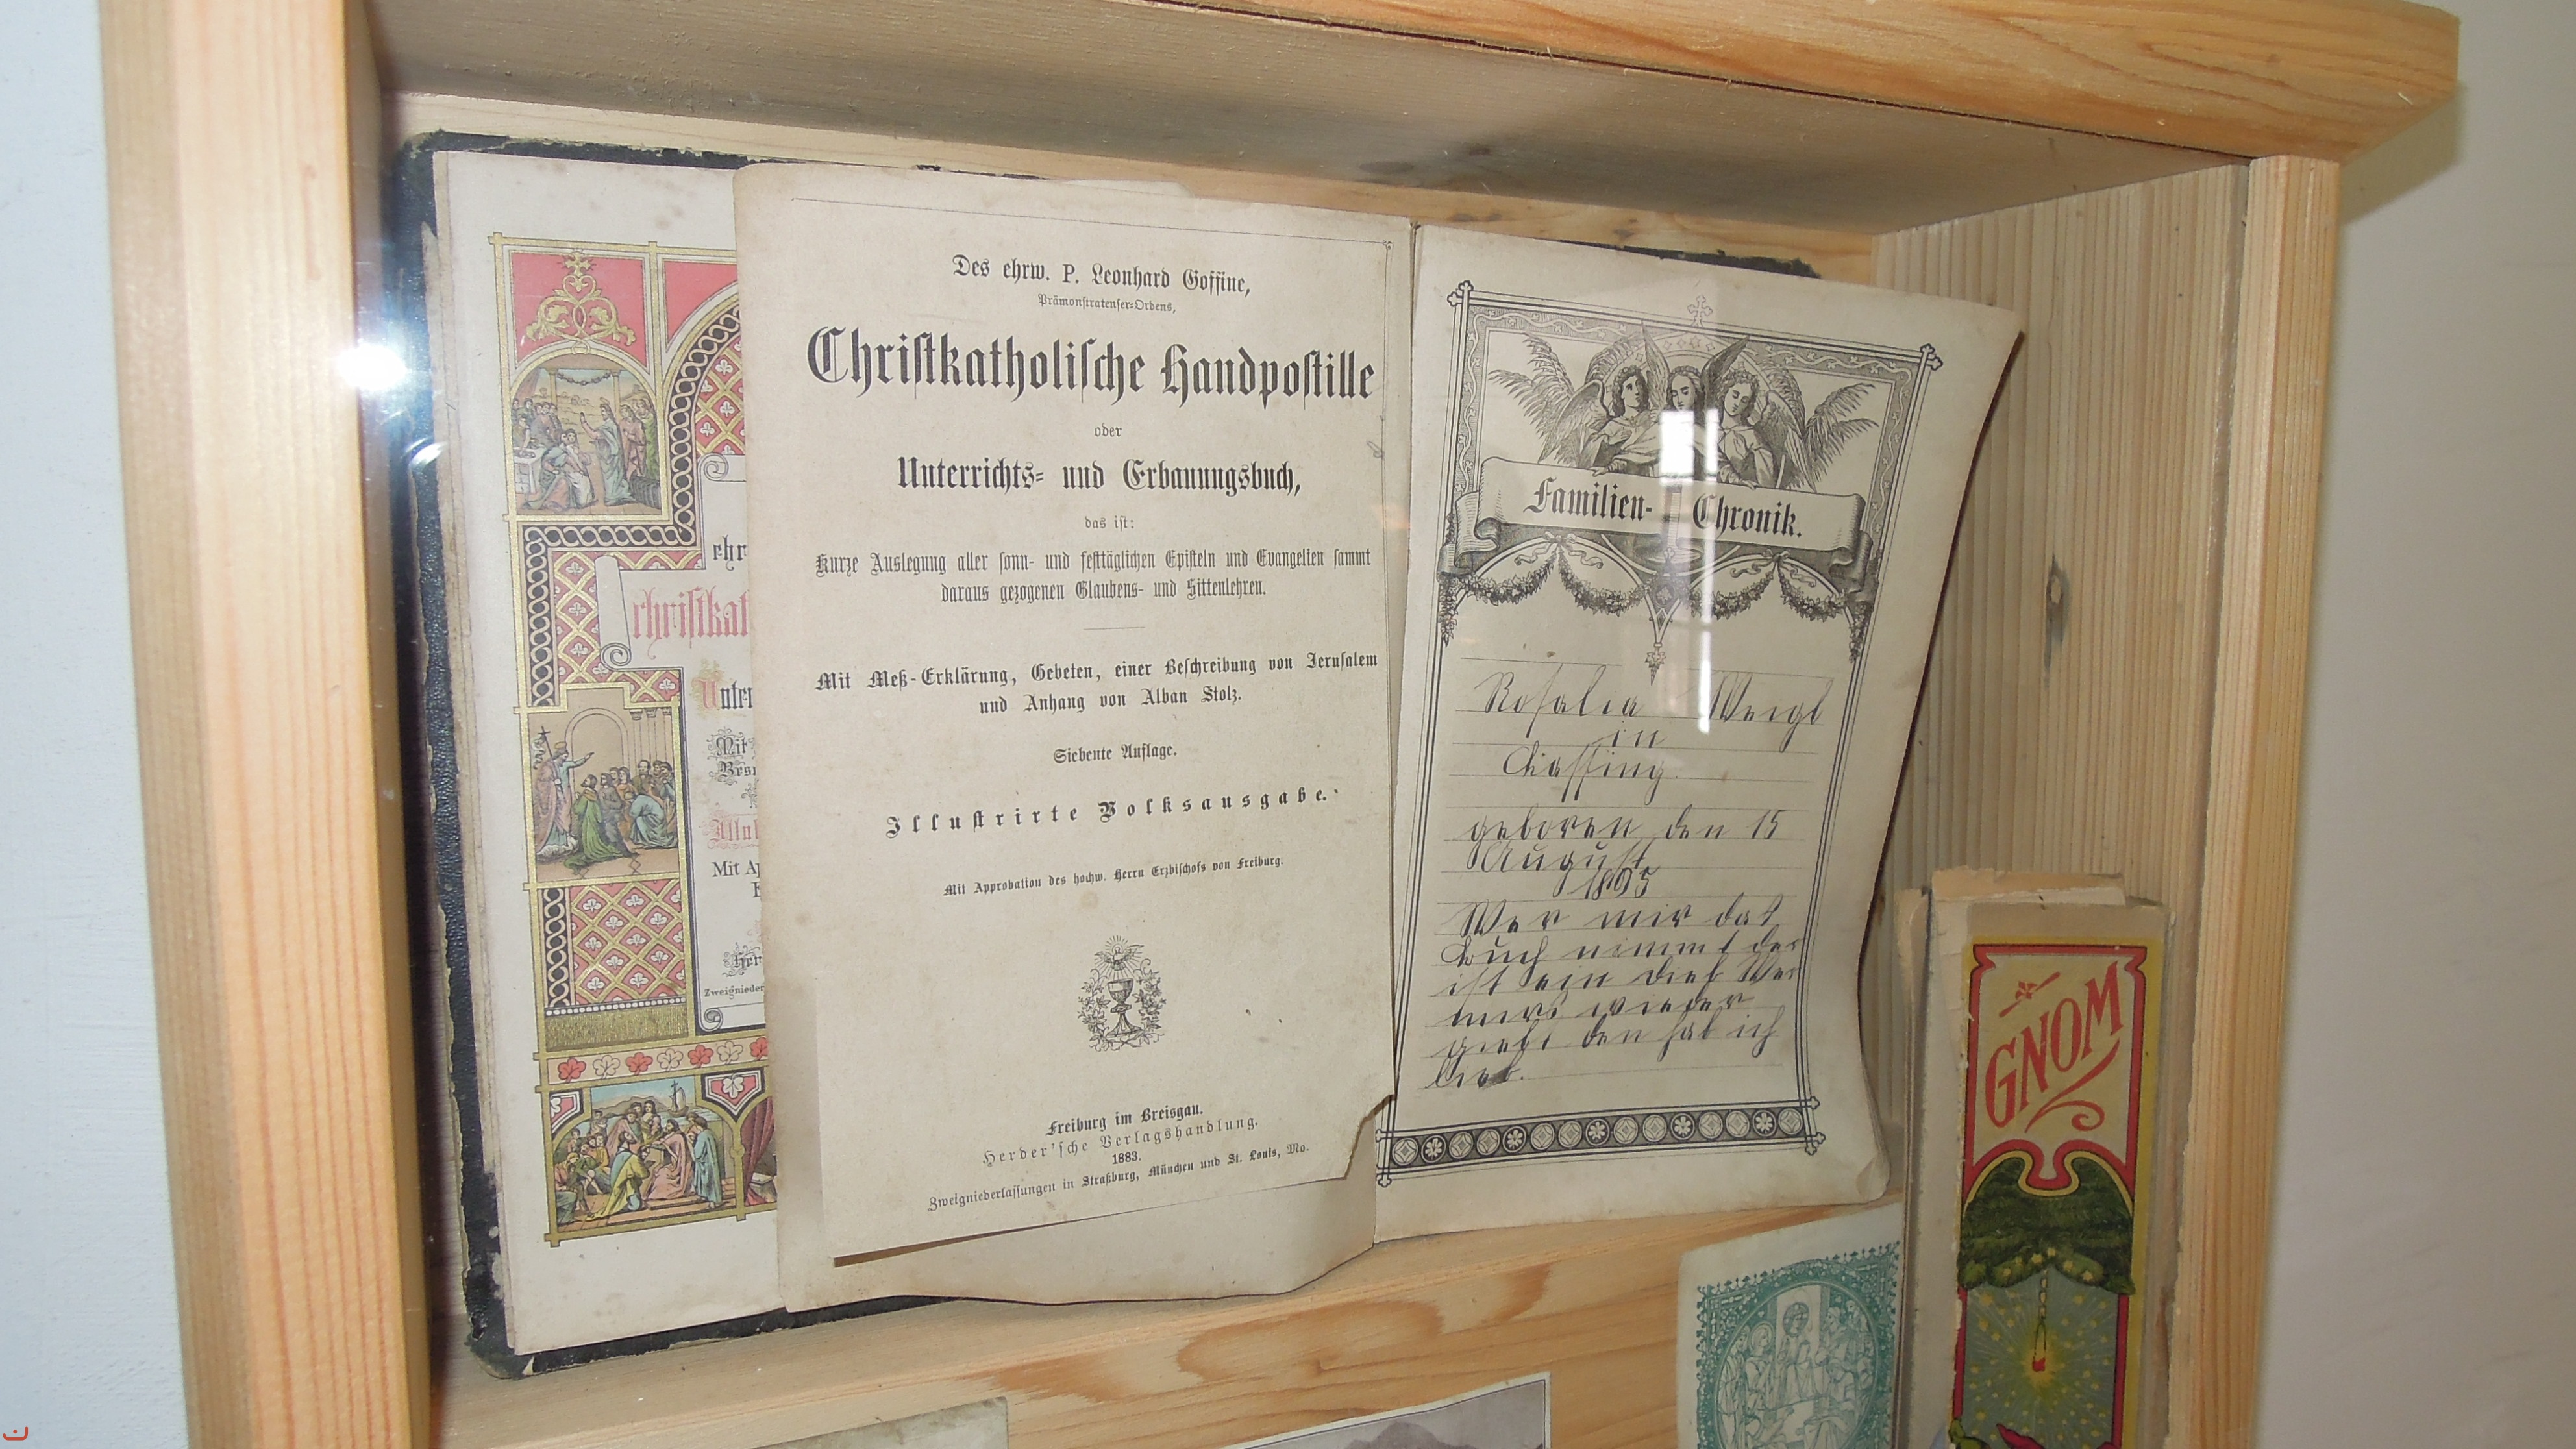 ehr
christkat
Unter
Mit
Illu
Mit Ap
Zweignieder
Des ehrw. P. Leonhard Goffine,
Prämonstratenser-Ordens,
Christkatholische Handpostille
oder
Unterrichts- und Erbauungsbuch,
das ist:
Kurze Auslegung aller sonn- und festtäglichen Episteln und Evangelien sammt
daraus gezogenen Glaubens- und Sittenlehren.
Mit Meß-Erklärung, Gebeten, einer Beschreibung von Jerusalem
und Anhang von Alban Stolz.
Siebente Auflage.
Illustrirte Volksausgabe.
Mit Approbation des hochw. Herrn Erzbischofs von Freiburg.
Freiburg im Breisgau.
Herder'sche Verlagshandlung.
1883.
Zweigniederlassungen in Straßburg, München und St. Louis, Mo.
Familien-Chronik.
Rosalia Weigl
in
geboren den 15
August
Wer mir das
buch nimmt der
ist ein dieb Wer
mirs wieder
giebt den hab ich
lieb.
GNOM